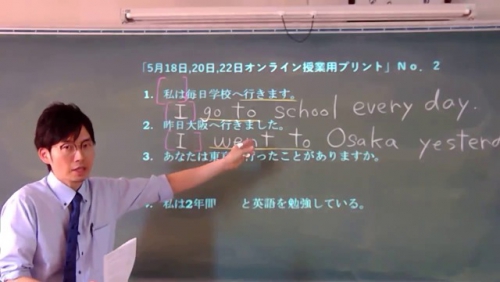 「5月18日,20日,22日オンライン授業用プリント」No. 2
1. 私は毎日学校へ行きます。
[ I ] go to school every day.
2. 昨日大阪へ行きました。
[ I ] went to Osaka
3. あなたは東 ったことがありますか。
私は2年間 と英語を勉強している。